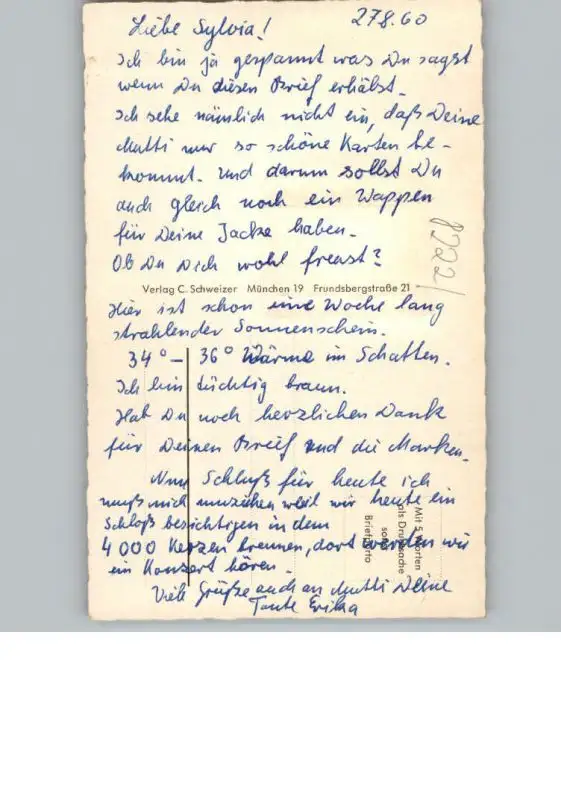 27.8.60
Liebe Sylvia!
Ich bin ja gespannt was Du sagst
wenn Du diesen Brief erhälst.
Ich sehe nämlich nicht ein, daß Deine
Mutti nur so schöne Karten be-
kommt. Und darum sollst Du
auch gleich noch ein Wappen
für Deine Jacke haben.
Ob Du Dich wohl freust?
Verlag C. Schweizer München 19 Frundsbergstraße 21
Hier ist schon eine Woche lang
strahlender Sonnenschein.
34° – 36° Wärme im Schatten.
Ich bin tüchtig braun.
Hab Du noch herzlichen Dank
für Deinen Brief und die Marken.
Nun Schluß für heute ich
muß mich umziehen weil wir heute ein
Schloß besichtigen in dem
4000 Kerzen brennen, dort werden wir
ein Konzert hören.
Viele Grüße auch an Mutti Deine
Tante Erika
8222/
Mit 5 Worten
als Drucksache
sonst
Briefporto